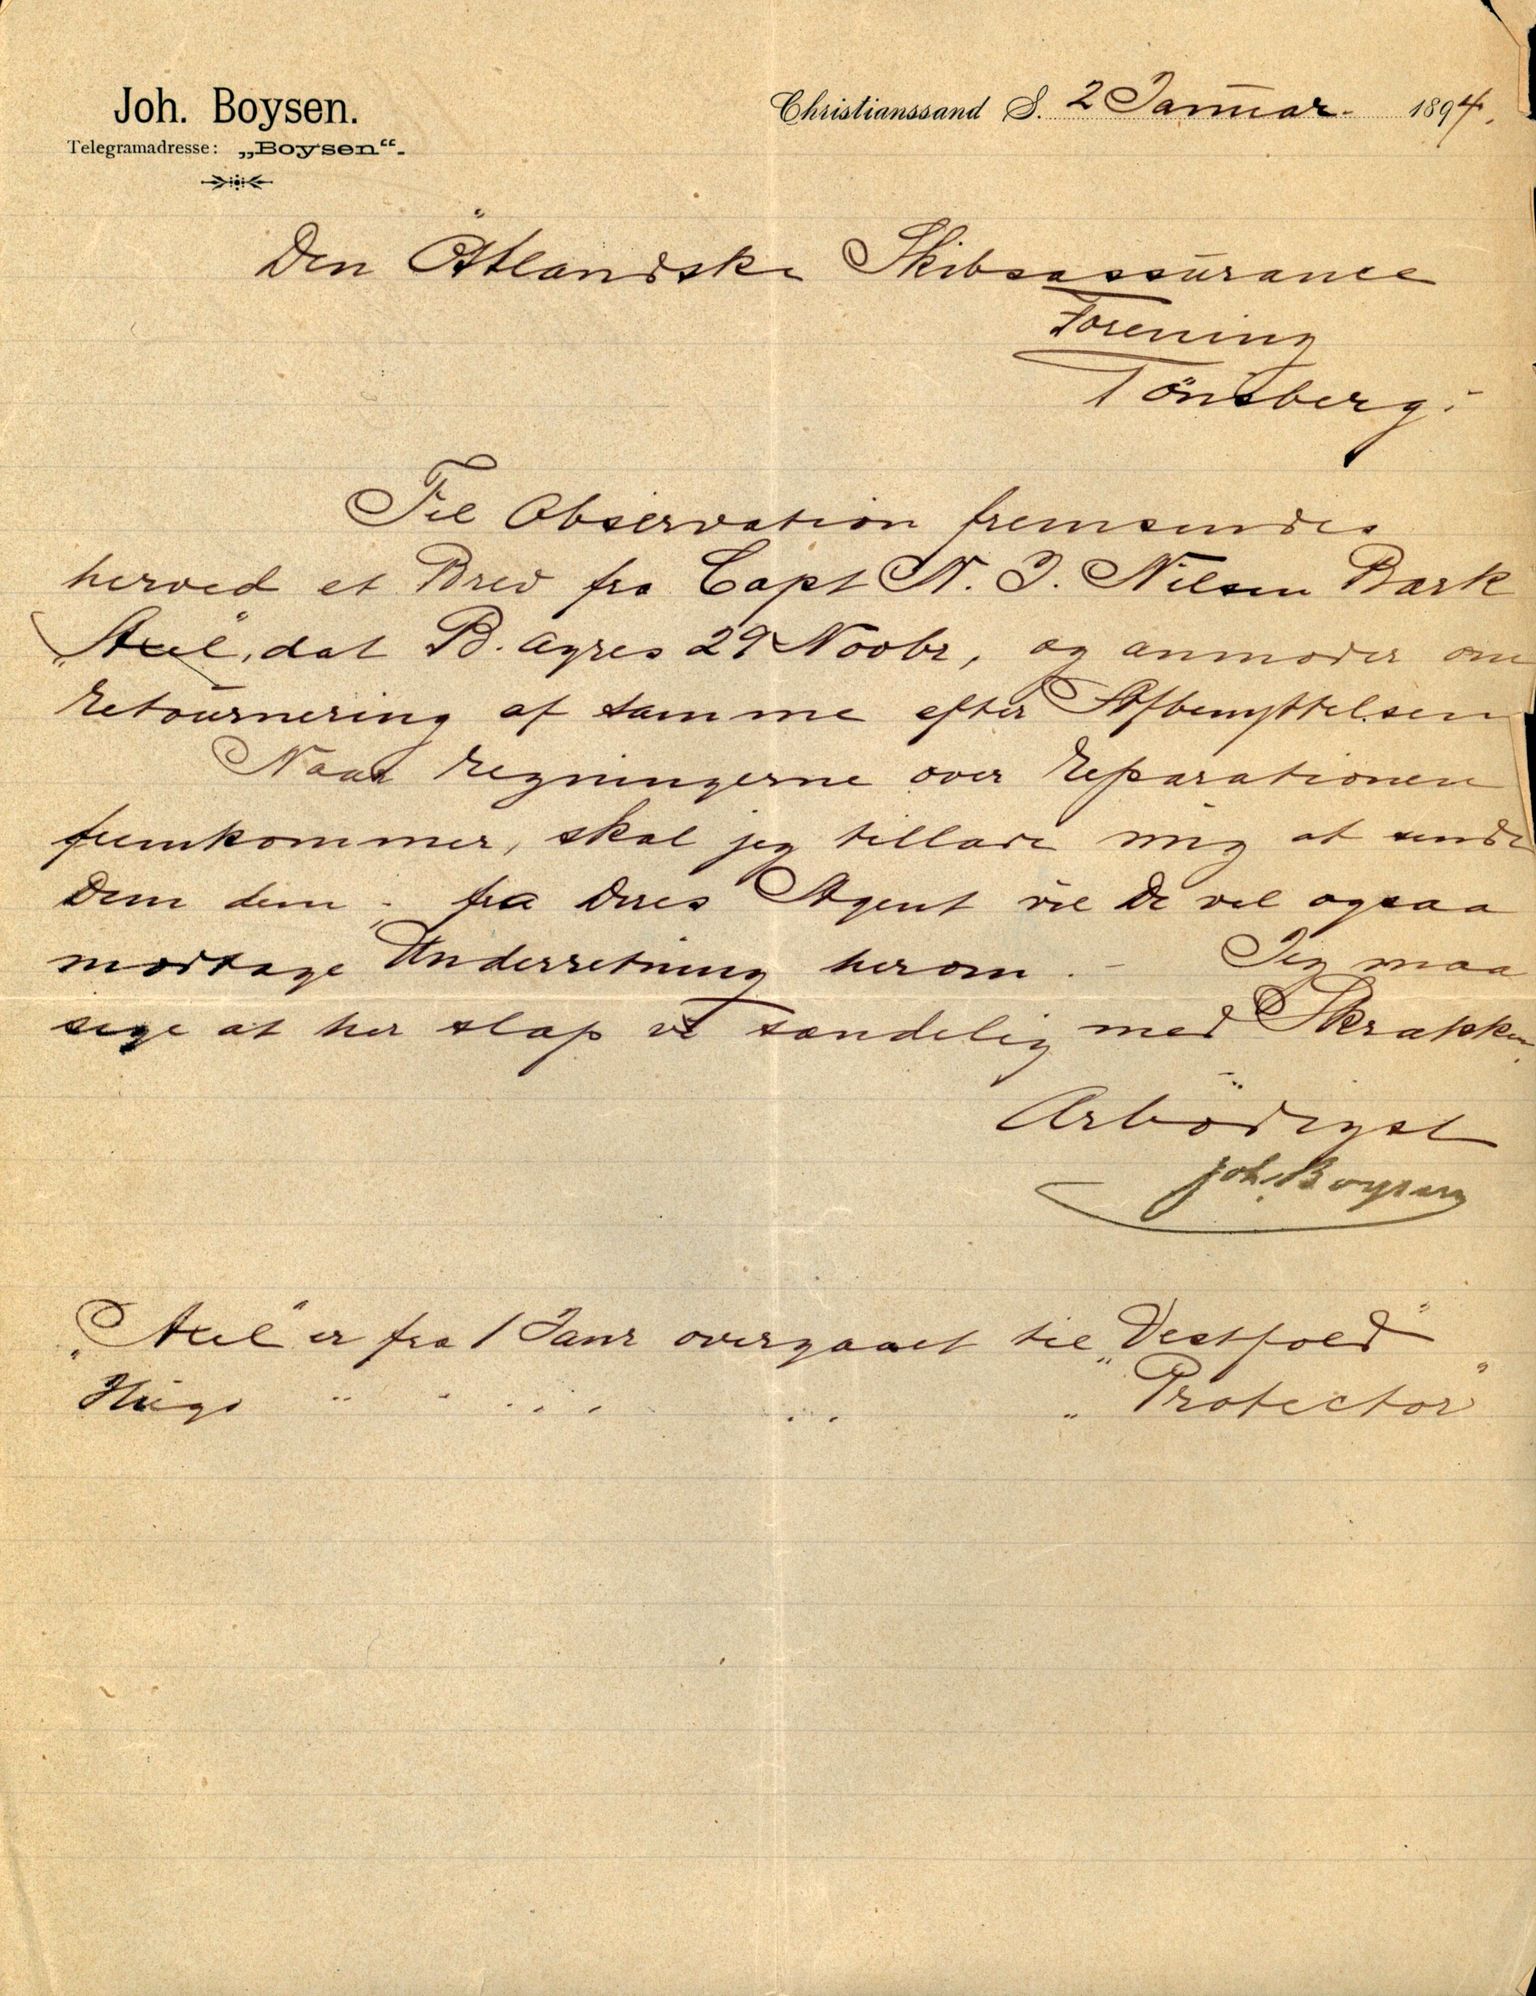 Joh. Boysen.
Telegramadresse: „Boysen“.
Christianssand S. 2 Januar. 1894.
Den Östlandske Skibsassurance
Forening
Tönsberg.
Til Observation fremsendes
herved et Brev fra Capt N. J. Nilsen Bark
„Axel“, dat B. Ayres 29 Novbr, og anmoder om
retournering af samme efter Afbenyttelsen
Naar regningerne over reparationen
fremkommer, skal jeg tillade mig at sende
Dem dem - fra Deres Agent vil De vel ogsaa
modtage Underretning herom. - Jeg maa
sige at her slap vi sandelig med Skrækken.
Arbödigst
Joh. Boysen
„Axel“ er fra 1 Janr overgaaet til „Vestfold“
Hugo " " " " " " „Protector“